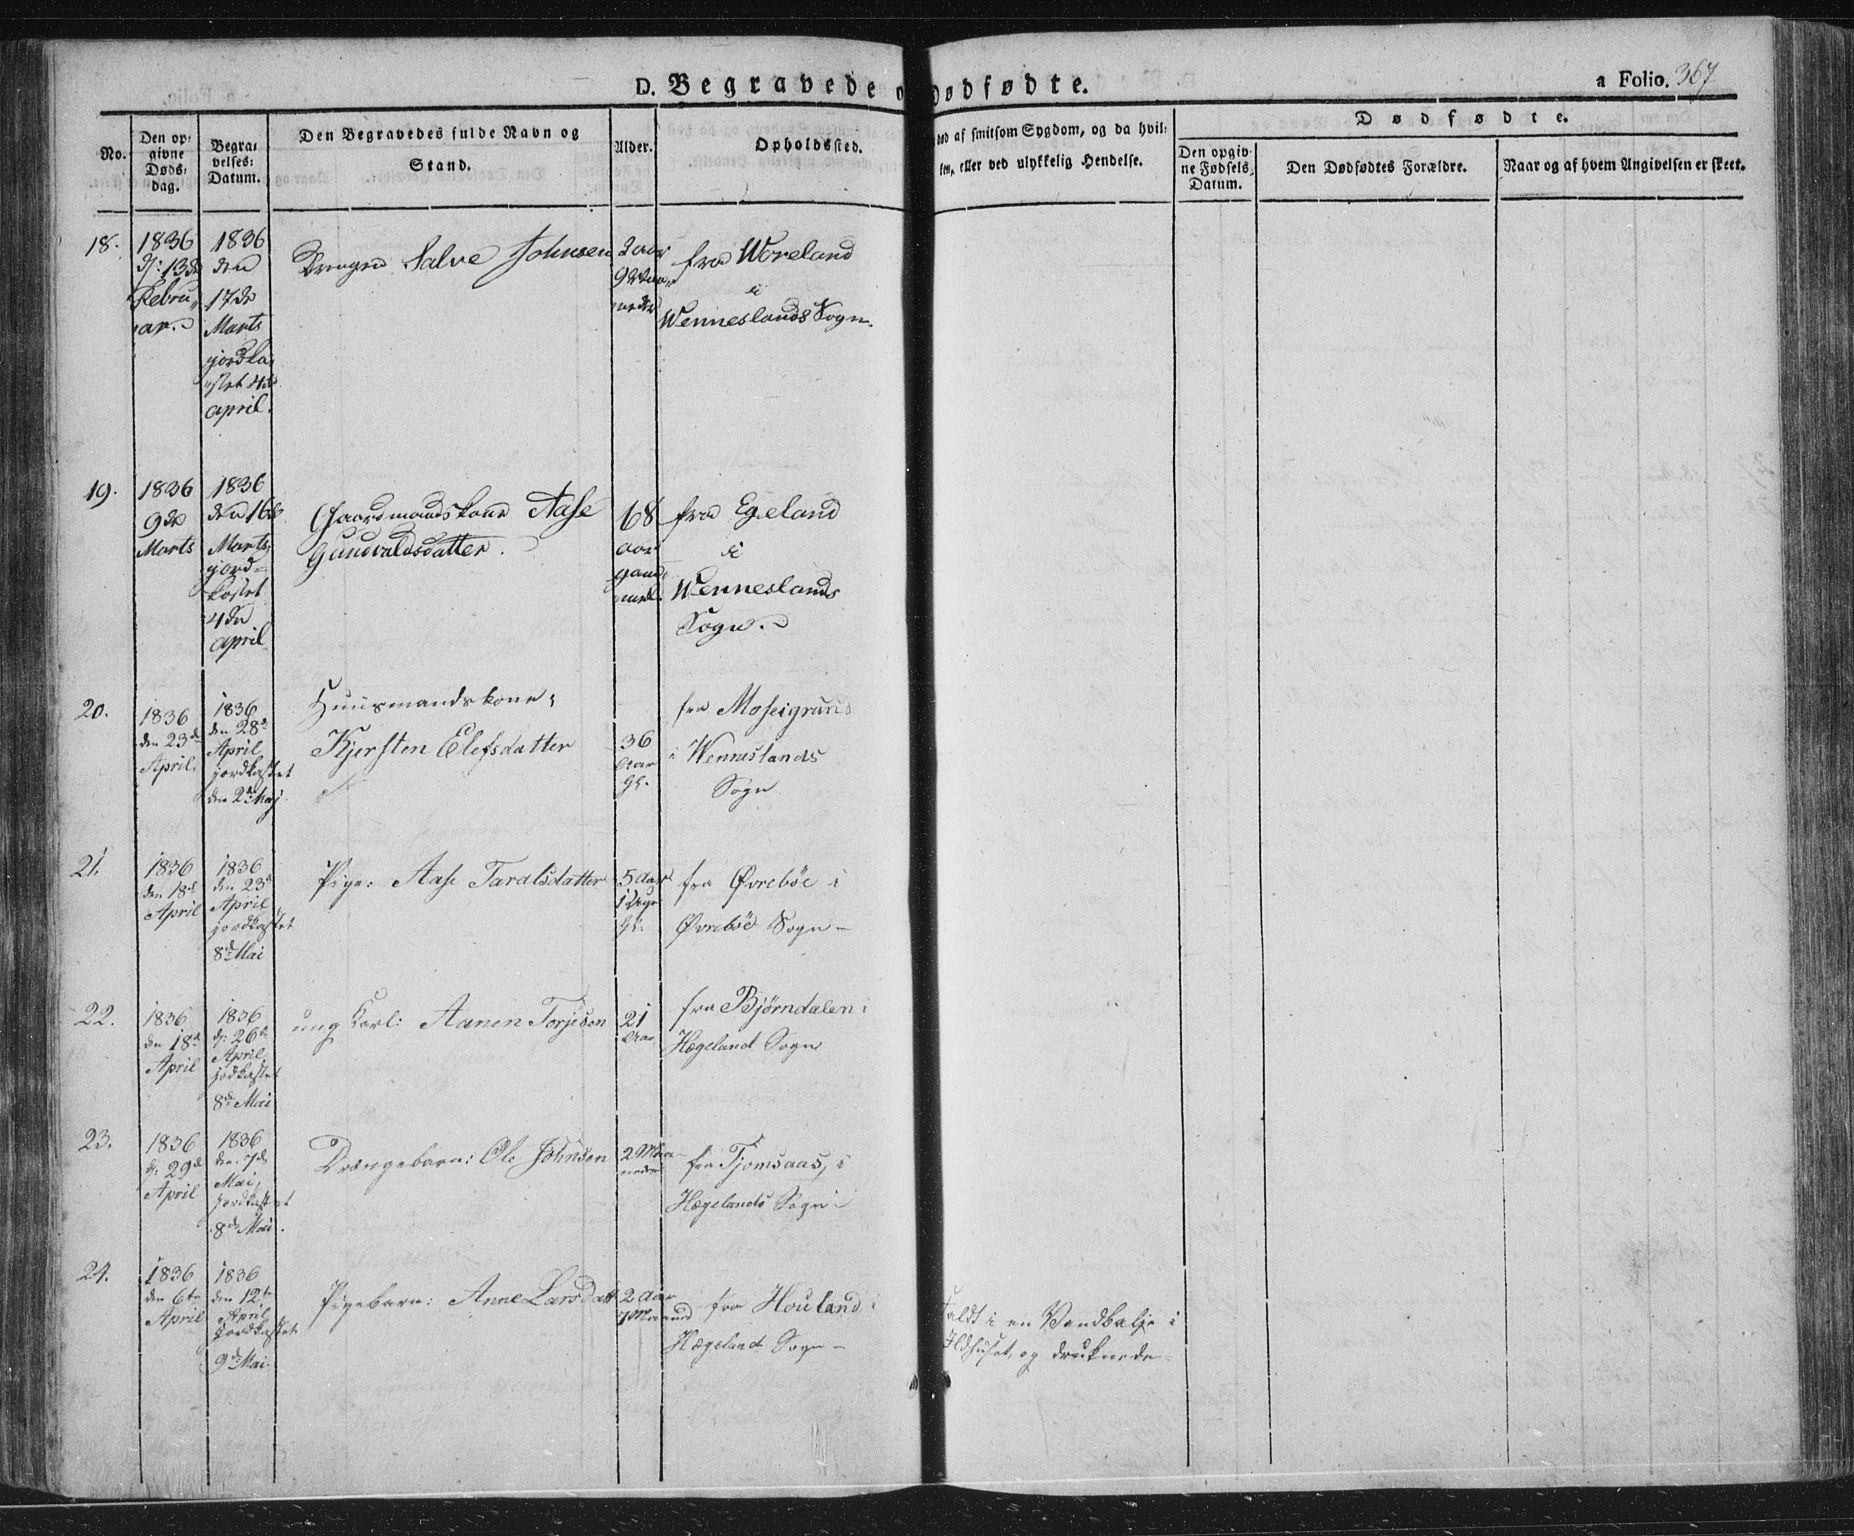 D. Begravede o
Dødfødte.
a Folio. 367
No.
Den op-
givne
Døds-
dag.
Begra-
velses-
Datum.
Den Begravedes fulde Navn og
Stand.
Alder.
Opholdssted.
død af smitsom Sygdom, og da hvil-
ken, eller ved ulykkelig Hendelse.
Dødfødte.
Den opgiv-
ne Fødsels-
Datum.
Den Dødfødtes Forældre.
Naar og af hvem Angivelsen er skeet.
18.
1836
d: 13de
Febru-
ar.
1836
den
17de
Marts
jordka-
stet 4de
april.
Drengen Salve Johnsen
2 aar
9 Maa-
neder
fra Woreland
i
Wenneslands Sogn.
19.
1836
9de
Marts
1836
den 16de
Marts,
jord-
kastet
4de
april
Gaardmandskone Aase
Gundvaldsdatter.
68
aar
fra Egeland
i
Wenneslands
Sogn.
20.
1836
den 23de
April.
1836
den 28de
April
jordkastet
den 2de Maj
Huusmandskone:
Kjersten Elefsdatter
36
Aar
gl.
fra Moseigrund
i Wenneslands
Sogn
21.
1836
den 18de
April
1836
den 23de
April
jordkastet
8de Mai
Pige: Aase Taralsdatter
5 Aar
1 Uge
gl.
fra Øvreböe i
Øvreböe Sogn -
22.
1836
den 18de
April
1836
d: 26de
April
jodkastet
8de Mai
ung Karl: Aanen Torjesen
21
Aar
fra Bjørndalen i
Hægeland Sogn
23.
1836
d: 29de
April
1836
den 7de
Mai,
Jordkastet
8de Mai.
Drængebarn: Ole Johnsen
2 Maa-
neder
fra Tjomsaas, i
Hægelands Sogn
24.
1836
den 6te
April
1836
den 12te
April
Jordkastet
9de Mai
Pigebarn: Anne Larsdatt
2 Aar
1 Maaned
fra Houland i
Hægeland Sogn -
Faldt i en Vandbalje i
Ildhuset, og druknede -